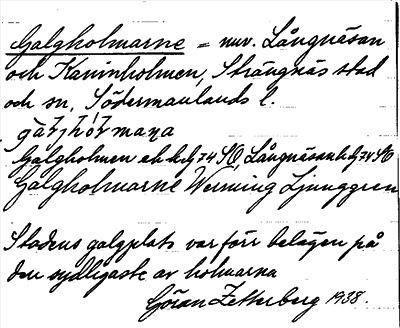 Galgholmarne = nuv. Långnäsan
och Kaninholmen, Strängnäs stad
och sn, Södermanlands l.
Galgholmen ek. bl. 74 SO, Långnäsan bl. 74 SO
Galgholmarne Werming Ljunggren
Stadens galgplats var förr belägen på
den sydligaste av holmarna
Göran Zetterberg 1938.